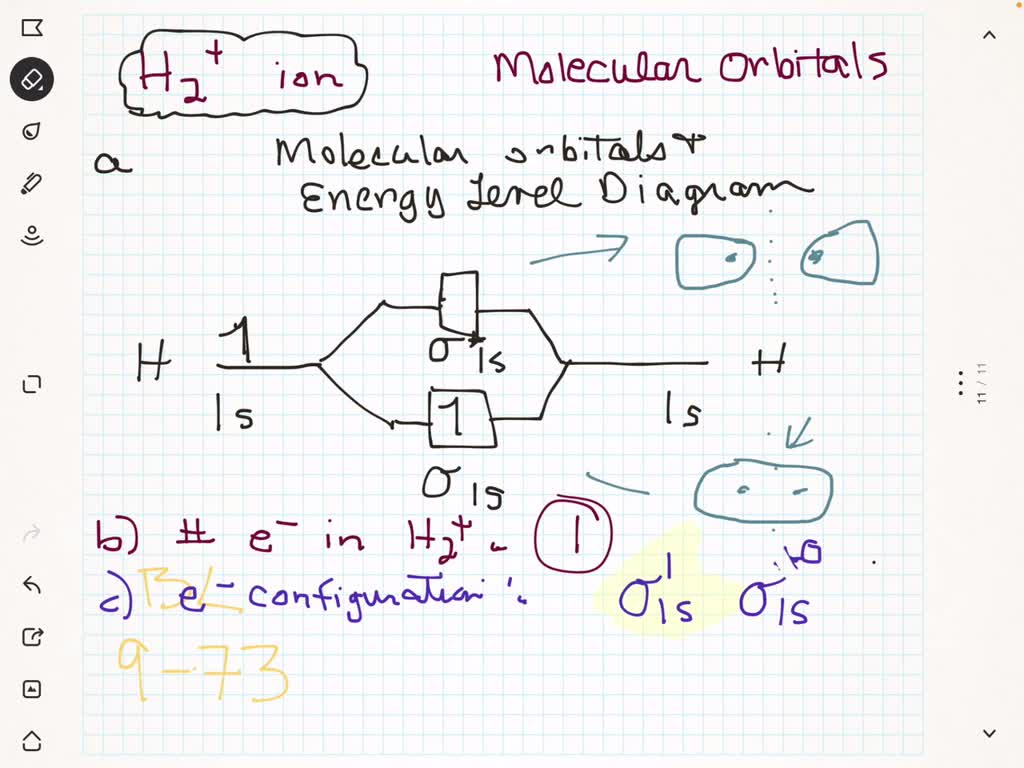 H₂⁺ ion Molecular Orbitals
a Molecular orbitals +
Energy Level Diagram
H 1 σ*1s H
1s 1 1s
σ1s
b) # e⁻ in H₂⁺. 1
c) e⁻ configuration: σ1s¹ σ1s*0
9-73
11 / 11